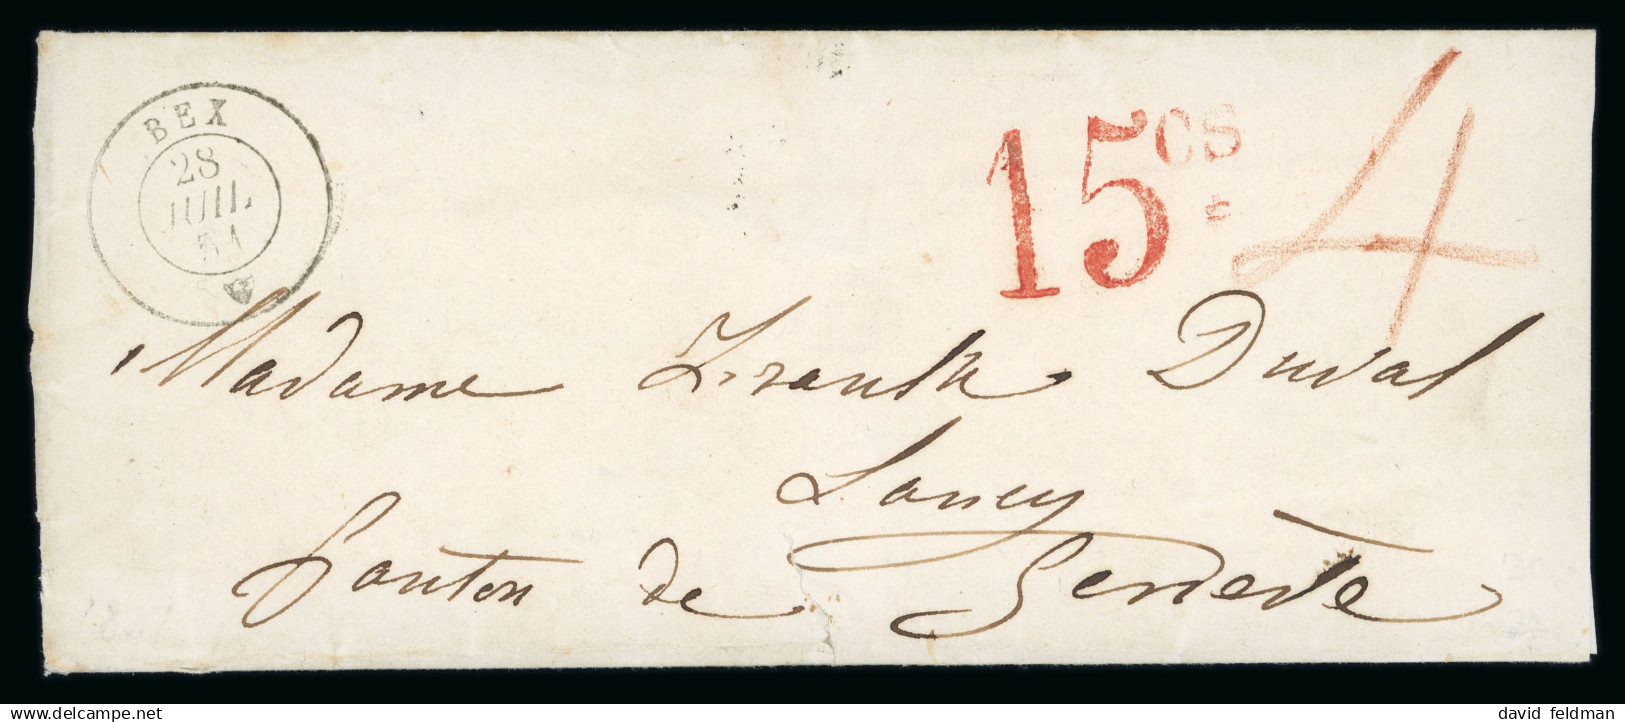 BEX
28
JUIL
51
15 cs
4
Madame Frank Duval
Lancy
Canton de Genève
david feldman
www.delcampe.net